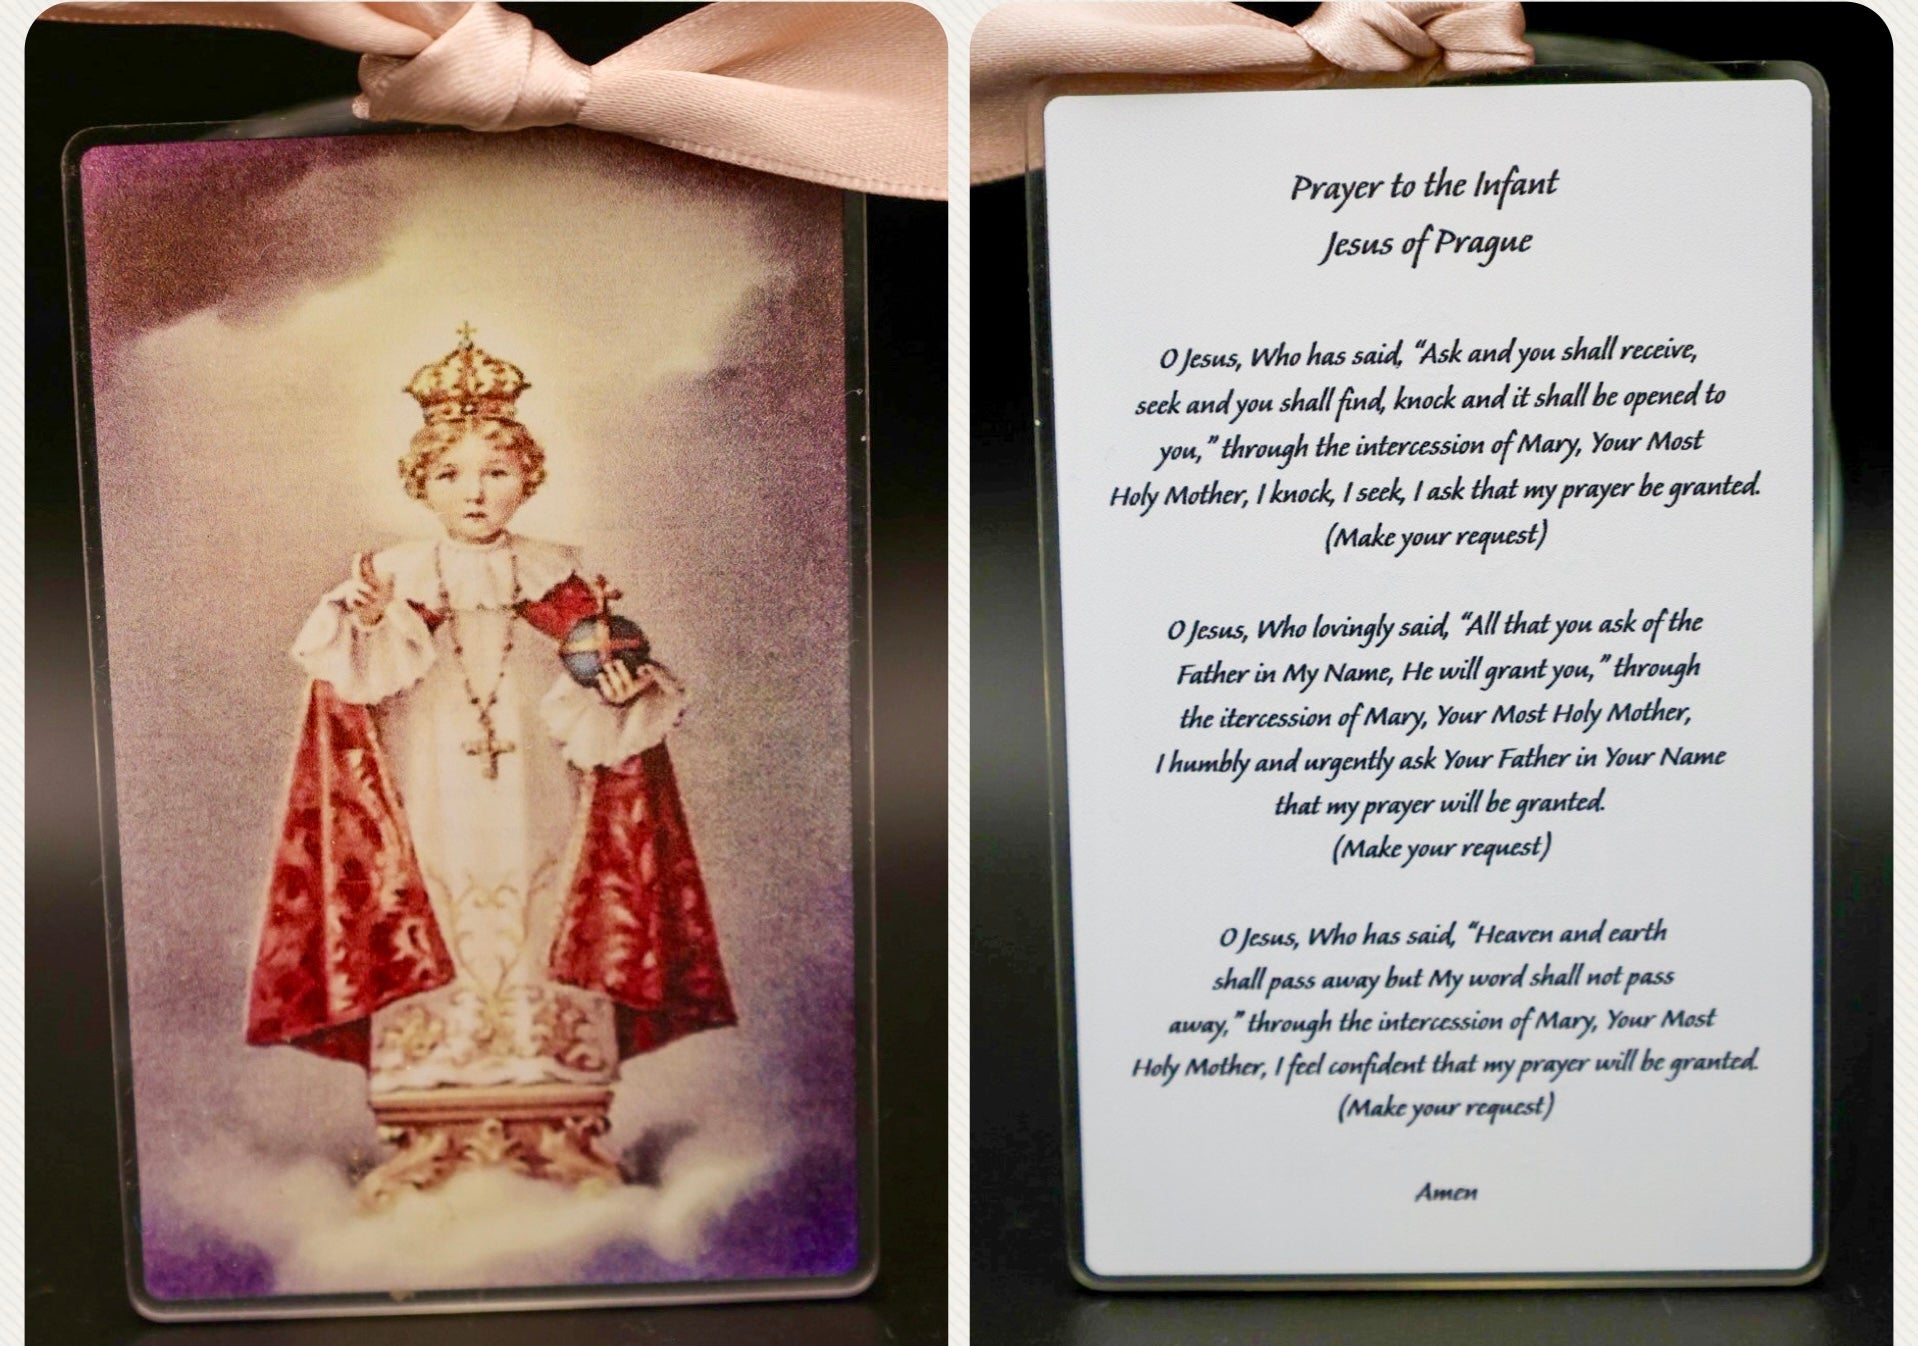 Prayer to the Infant
Jesus of Prague
O Jesus, Who has said, “Ask and you shall receive,
seek and you shall find, knock and it shall be opened to
you,” through the intercession of Mary, Your Most
Holy Mother, I knock, I seek, I ask that my prayer be granted.
(Make your request)
O Jesus, Who lovingly said, “All that you ask of the
Father in My Name, He will grant you,” through
the itercession of Mary, Your Most Holy Mother,
I humbly and urgently ask Your Father in Your Name
that my prayer will be granted.
(Make your request)
O Jesus, Who has said, “Heaven and earth
shall pass away but My word shall not pass
away,” through the intercession of Mary, Your Most
Holy Mother, I feel confident that my prayer will be granted.
(Make your request)
Amen